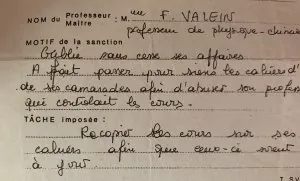 NOM du Professeur : M me F. VALEIN
Maître
professeur de physique-chimie
MOTIF de la sanction
Oublie sans cesse ses affaires
A fait passer pour siens les cahiers d'
de ses camarades afin d'abuser son profes
qui contrôlait les cours.
TÂCHE imposée :
Recopier les cours sur ses
cahiers afin que ceux-ci soient
à jour